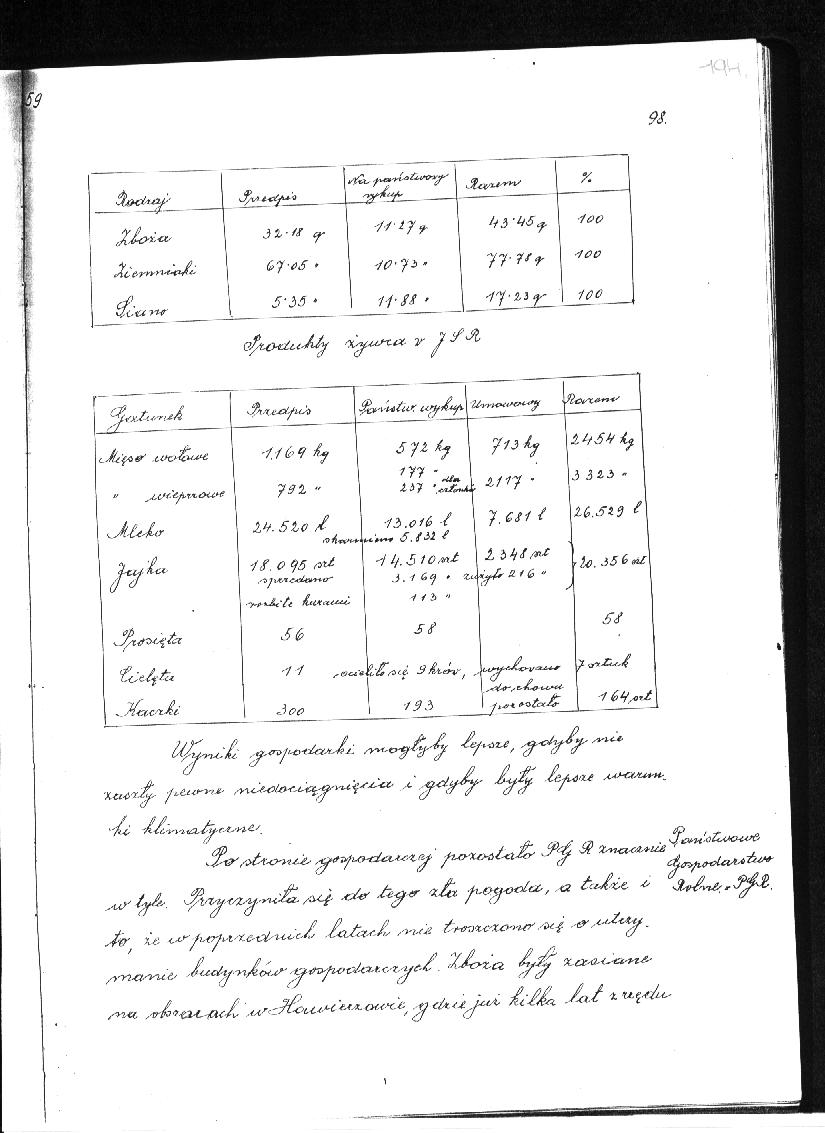 194.
59
98.
Rodzaj Przedpis Na państwowy wykup Razem %
Zboża 32·18 q 11·27 q 43·45 q 100
Ziemniaki 67·05 " 10·73 " 77·78 q 100
Siano 5·35 " 11·88 " 17·23 q 100
Produkty żywca v JSR
Gatunek Przedpis Państw. wykup Umowowy Razem
Mięso wołowe 1.169 kg 572 kg 713 kg 2454 kg
177 "
" wieprzowe 792 " 237 " dla członków 2117 " 3323 "
Mleko 24.520 l 13.016 l 7.681 l 26.529 l
skarmiono 5.832 l
Jajka 18.095 szt 14.510 szt 2348 szt 20.356 szt
sprzedano 3.169 " zużyto 216 "
rozbite kurami 113 "
Prosięta 56 58 58
Cielęta 11 ocieliło się 9 krów, wychowano 7 sztuk
Kaczki 300 193 do chowu pozostało 164 szt
Wyniki gospodarki mogłyby lepsze, gdyby nie
zaszły pewne niedociągnięcia i gdyby były lepsze warun-
ki klimatyczne.
Po stronie gospodarczej pozostało PGR znacznie
w tyle. Przyczyniła się do tego zła pogoda, a także i
to, że w poprzednich latach nie troszczono się o utrzy-
manie budynków gospodarczych. Zboża były zasiane
na obszarach w Hawierzowie, gdzie już kilka lat z rzędu
Państwowe
Gospodarstwo
Rolne - PGR.